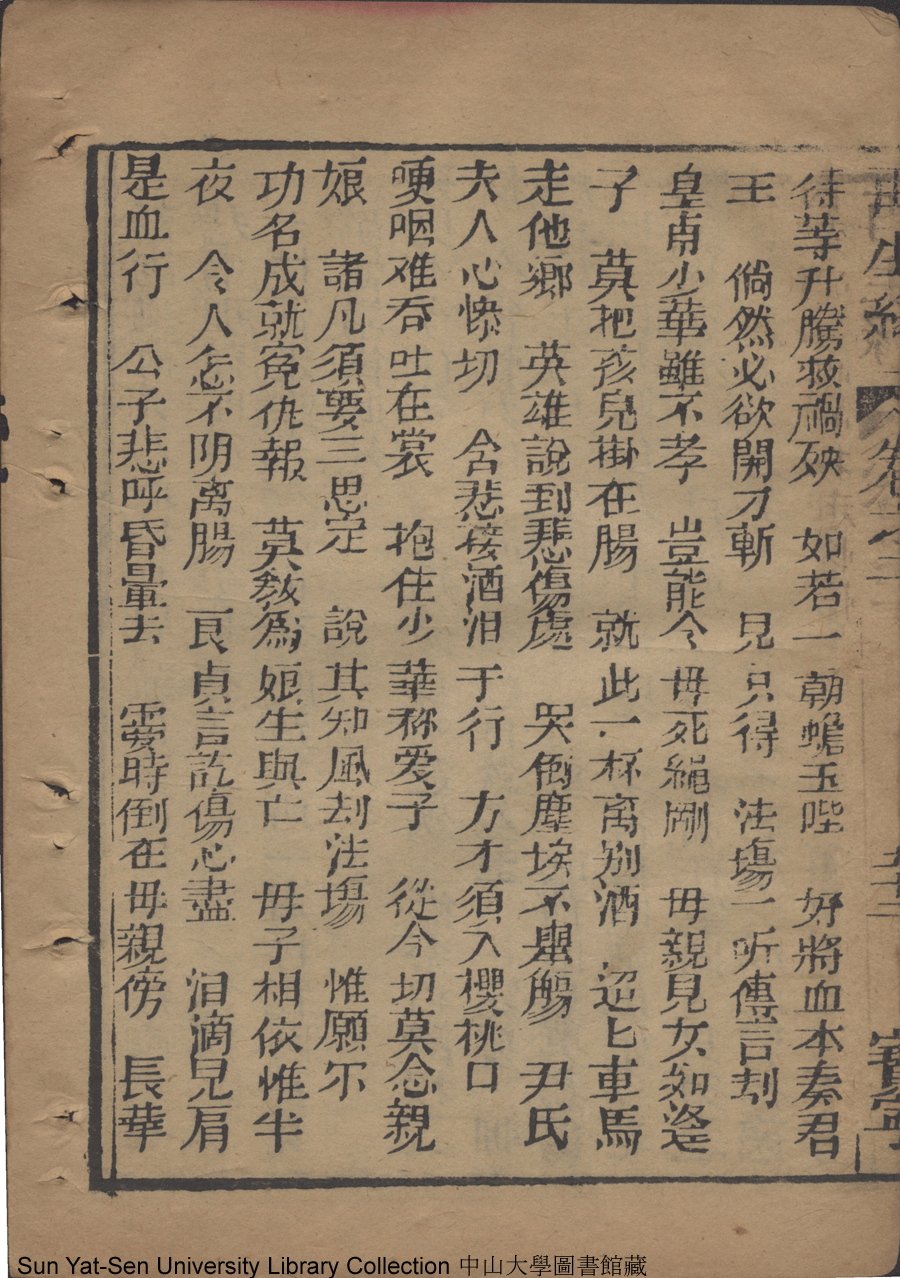 待等升騰救禍殃　如若一朝蟾玉陛　好將血本奏君
王　倘然必欲開刀斬　見只得　法塲一听傳言刦
皇甫少華雖不孝　豈能令毋死繩剛　毋親見女如逄
子　莫把孩兒掛在腸　就此一杯离别酒　迢匕車馬
走他鄉　英雄說到悲傷處　哭倒塵埃不舉觴　尹氏
夫人心惨切　含悲接酒泪于行　方才須入櫻桃口
哽咽难吞吐在裳　抱住少華称爱子　從今切莫念親
娘　諸凡須要三思定　說其知風刦法塲　惟願尔
功名成就寃仇報　莫教為娘生與亡　毋子相依惟半
夜　令人怎不阴离腸　良貞言訖傷心盡　泪滴兒肩
是血行　公子悲呼昏暈去　霎時倒在毋親傍　長華
生緣
卷之二
寳寧
Sun Yat-Sen University Library Collection 中山大學圖書館藏